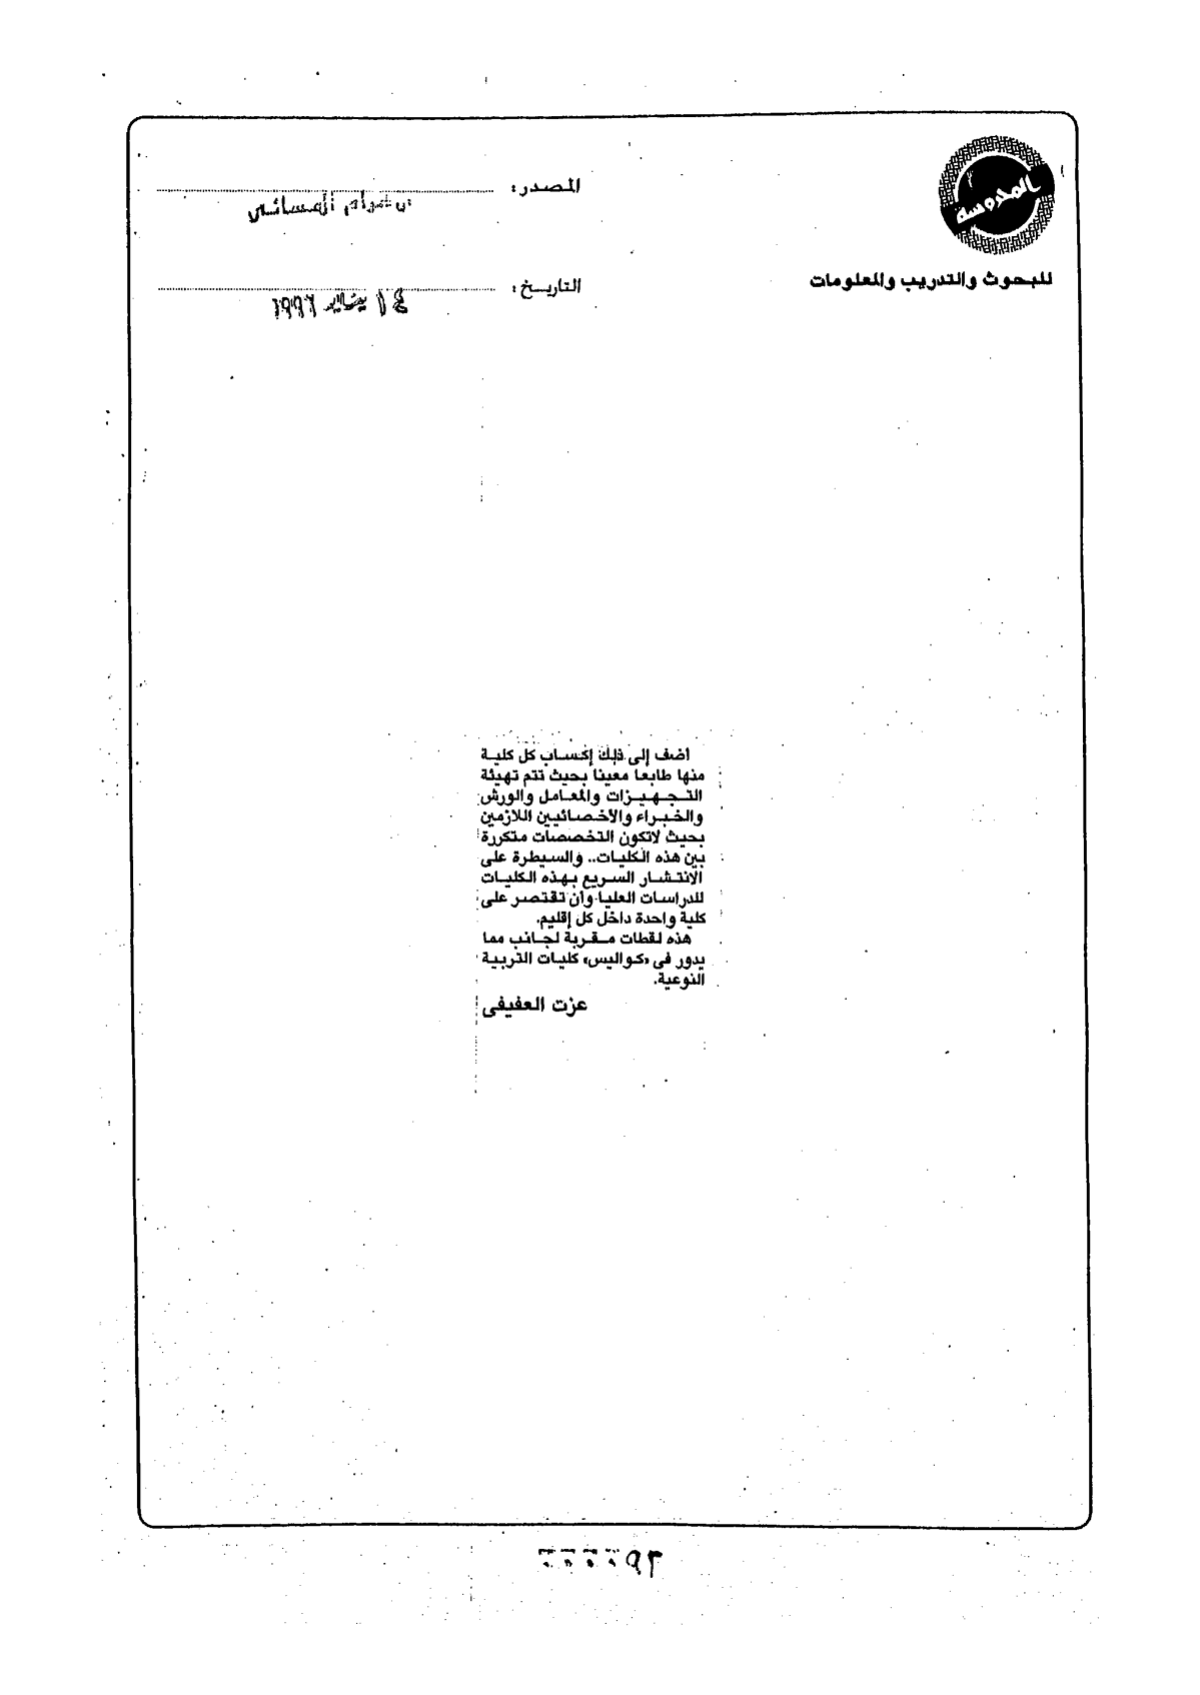 المحروسة
للبحوث والتدريب والمعلومات
المصدر: المسائى
التاريخ: ١٤ يناير ١٩٩٦
اضف إلى ذلك إكساب كل كلية
منها طابعا معينا بحيث تتم تهيئة
التجهيزات والمعامل والورش
والخبراء والاخصائيين اللازمين
بحيث لاتكون التخصصات متكررة
بين هذه الكليات.. والسيطرة على
الانتشار السريع بهذه الكليات
للدراسات العليا وان تقتصر على
كلية واحدة داخل كل إقليم.
هذه لقطات مقربة لجانب مما
يدور فى «كواليس» كليات التربية
النوعية.
عزت العفيفى